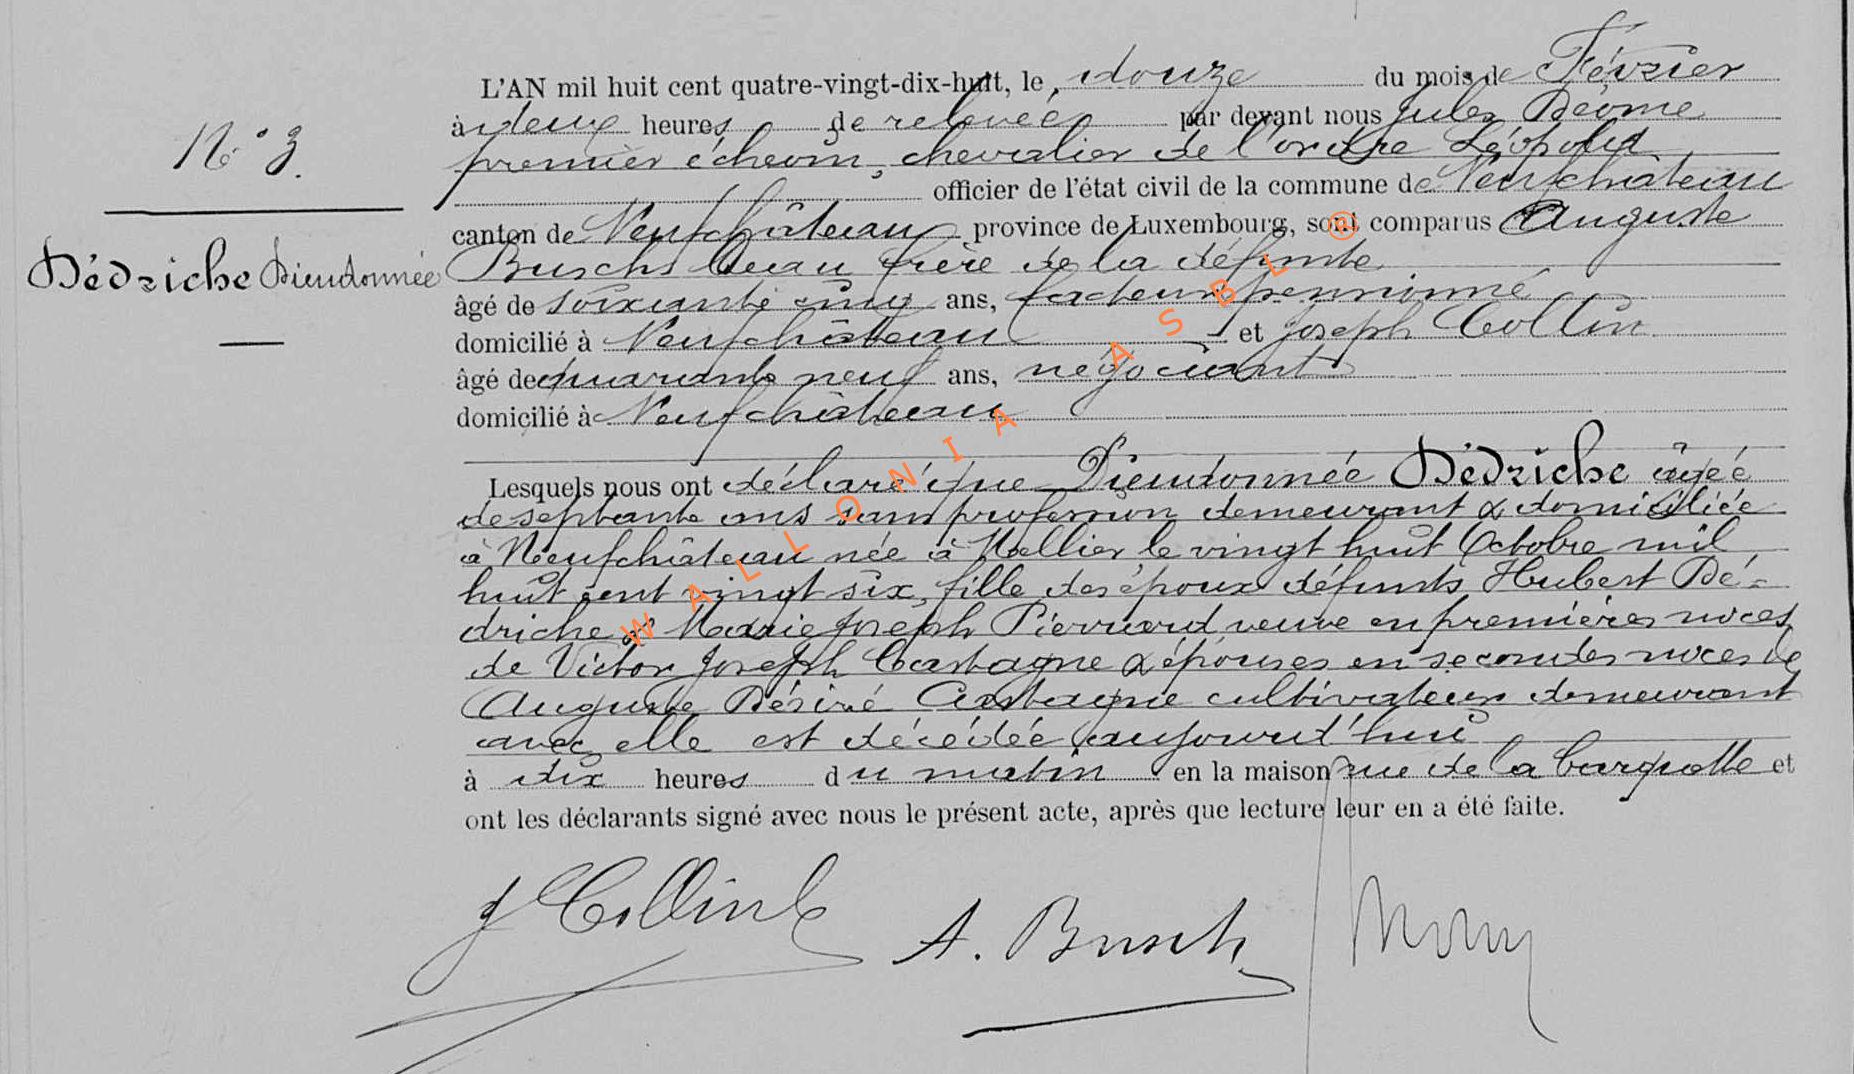 L'AN mil huit cent quatre-vingt-dix-huit, le douze du mois de Février
à deux heures de relevée par devant nous Jules Déome
N° 3.
premier échevin, chevalier de l'ordre Léopold
officier de l'état civil de la commune de Neufchâteau
canton de Neufchâteau province de Luxembourg, sont comparus Auguste
Dédriche Dieudonnée
Buschs beau frère de la défunte
âgé de soixante cinq ans, facteur pensionné
domicilié à Neufchâteau et Joseph Collin
âgé de quarante neuf ans, négociant
domicilié à Neufchâteau
Lesquels nous ont déclaré que Dieudonnée Dédriche âgée
de septante ans sans profession demeurant & domiciliée
à Neufchâteau née à Mellier le vingt huit Octobre mil
huit cent vingt six, fille des époux défunts Hubert Dé-
driche & Marie Joseph Pierrard veuve en premières noces
de Victor Joseph Castagne & épouses en secondes noces de
Auguste Désiré Castagne cultivateur demeurant
avec elle est décédée aujourd'hui
à dix heures du matin en la maison rue de la et
ont les déclarants signé avec nous le présent acte, après que lecture leur en a été faite.
J Collin A. Busch
WALLONIA ASBL ®